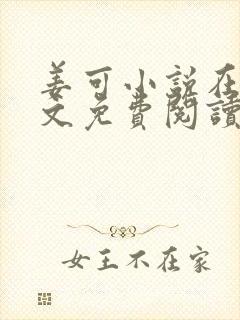 姜可小说在
文免費閱讀
女王不在家